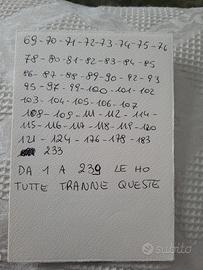 69-70-71-72-73-74-75-76
78-80-81-82-83-84-85
86-87-88-89-90-92-93
95-97-99-100-101-102
103-104-105-106-107
108-109-111-112-114-
115-116-117-118-119-120
121-124-176-178-183
233
DA 1 A 239 LE HO
TUTTE TRANNE QUESTE
subito